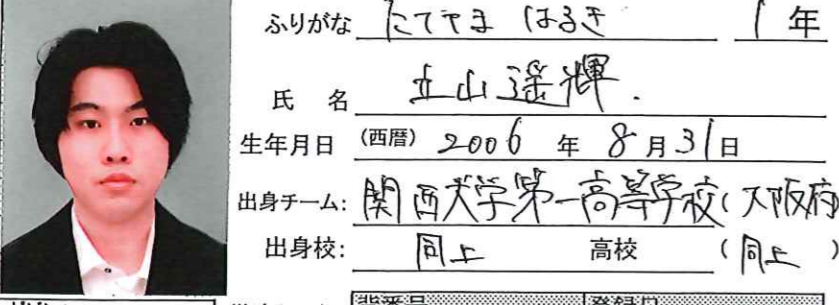 ふりがな たてやま はるき 1年
氏 名 立山遥輝.
生年月日 (西暦) 2006 年 8月31日
出身チーム: 関西大学第一高等学校(大阪府)
出身校: 同上 高校 (同上)
背番号 登録日